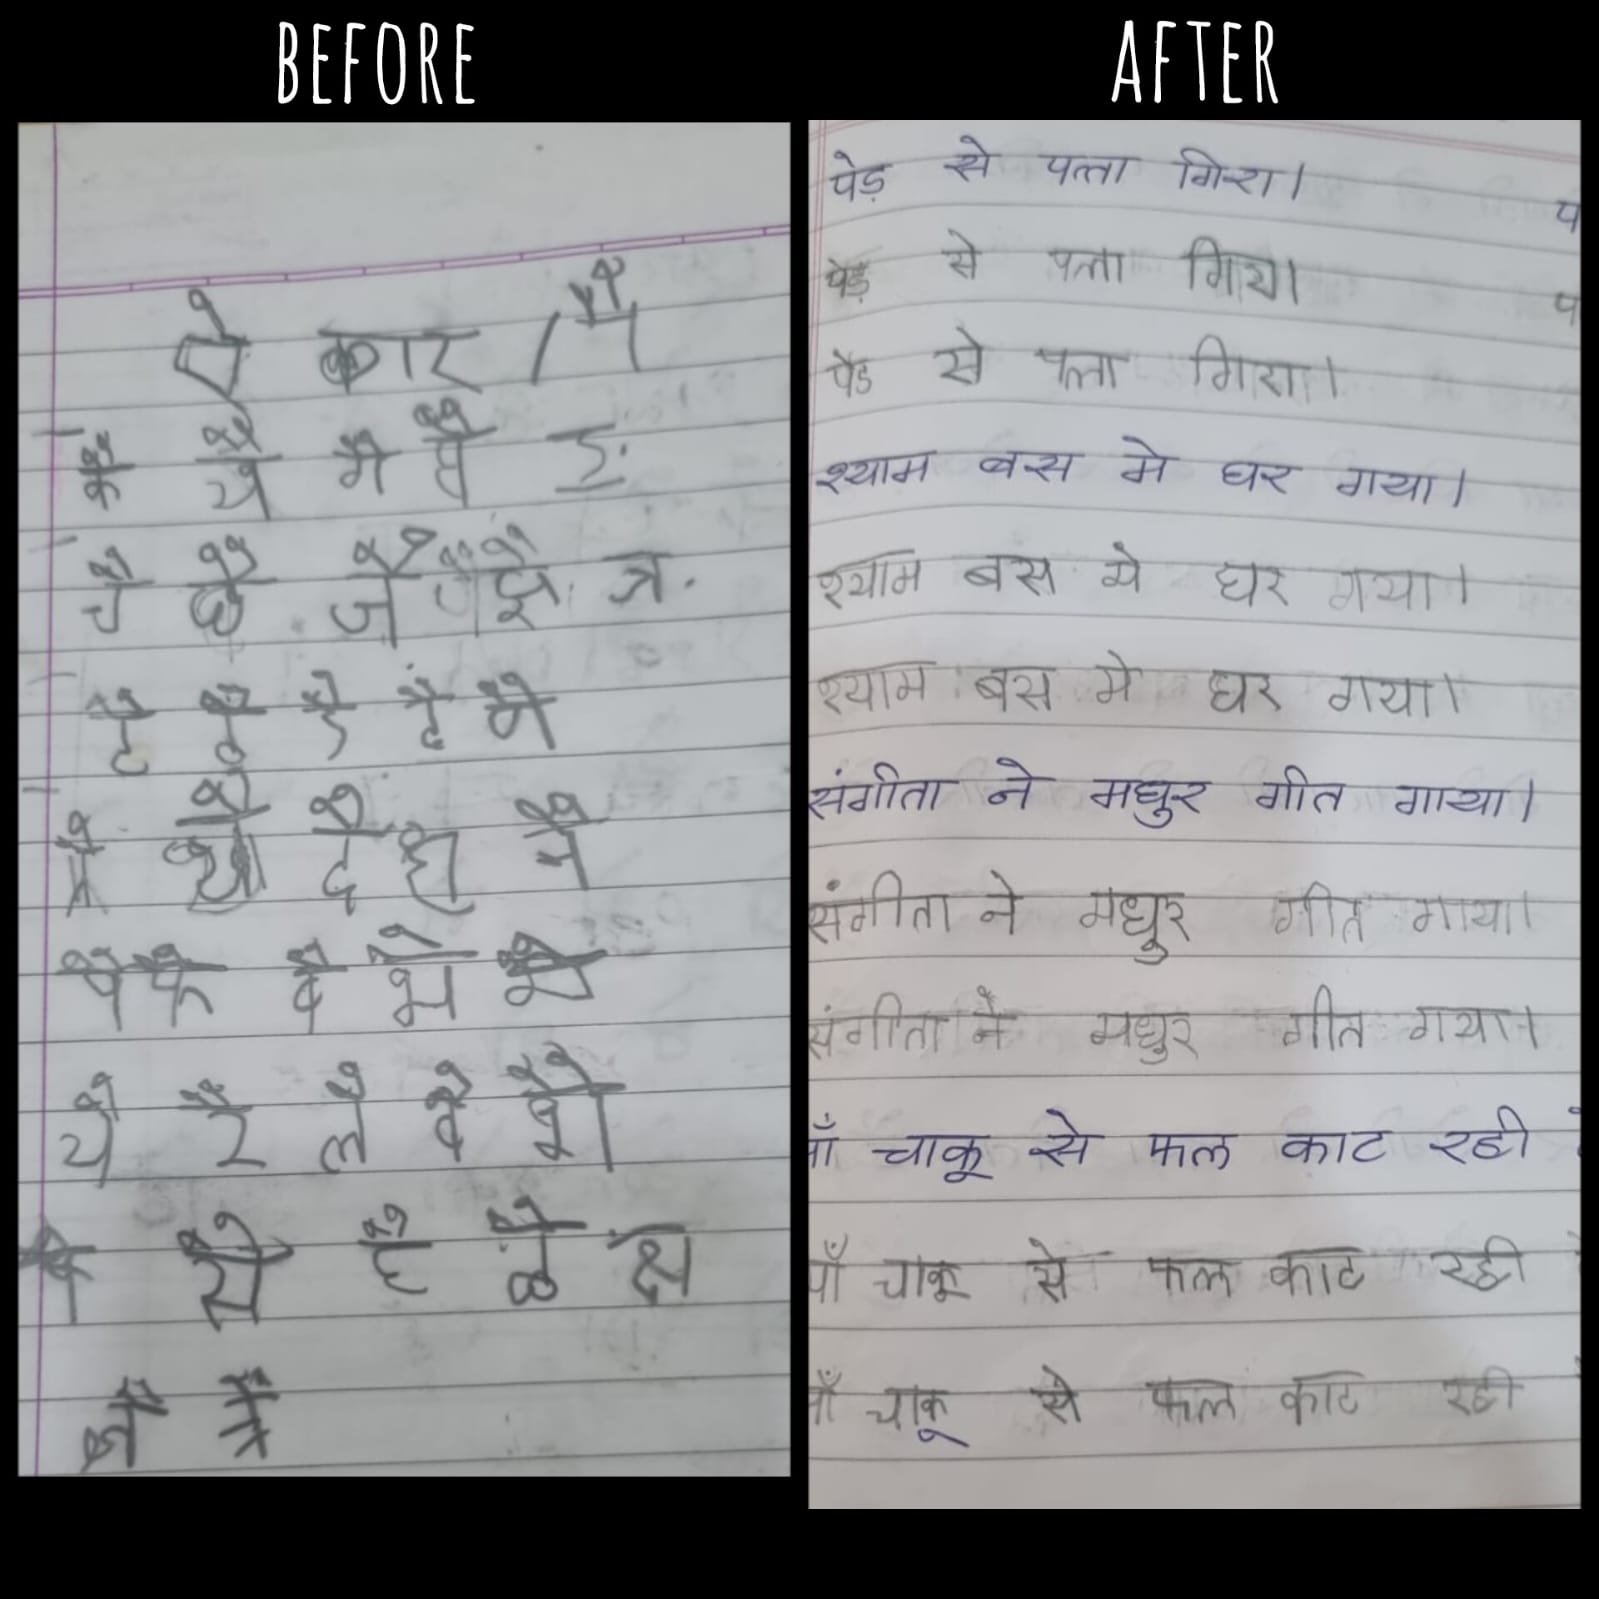 BEFORE
ऐ कार / ै
कै खै गै घै ङ
चै छै जै झै ञ
टै ठै डै ढै णै
तै थै दै धै नै
पै फै बै भै मै
यै रै लै वै शै
षै सै है ळै क्ष
ज्ञै त्रै
AFTER
पेड़ से पत्ता गिरा।
पेड़ से पत्ता गिरा।
पेड से पत्ता गिरा।
श्याम बस मे घर गया।
श्याम बस मे घर गया।
श्याम बस मे घर गया।
संगीता ने मधुर गीत गाया।
संगीता ने मधुर गीत गाया।
संगीता ने मधुर गीत गया।
माँ चाकू से फल काट रही
माँ चाकू से फल काट रही
माँ चाकू से फल काट रही